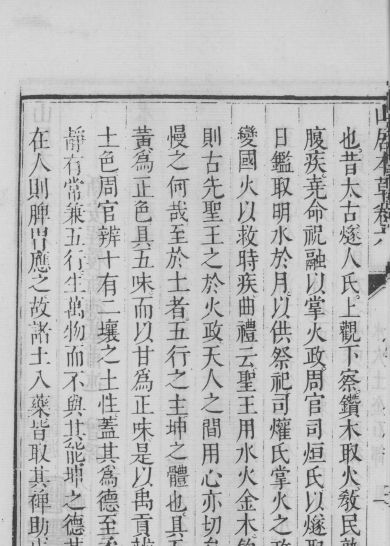 山居本草卷六
也昔太古燧人氏上觀下察鑽木取火敎民熟
腹疾堯命祝融以掌火政周官司烜氏以燧取
日鑑取明水於月以供祭祀司爟氏掌火之政
變國火以救時疾曲禮云聖王用水火金木飲
則古先聖王之於火政天人之間用心亦切矣
慢之何哉至於土者五行之主坤之體也具五
黃爲正色具五味而以甘爲正味是以禹貢辨
土色周官辨十有二壤之土性蓋其爲德至
靜有常兼五行生萬物而不與其能坤之德
在人則脾胃應之故諸土入藥皆取其裨助